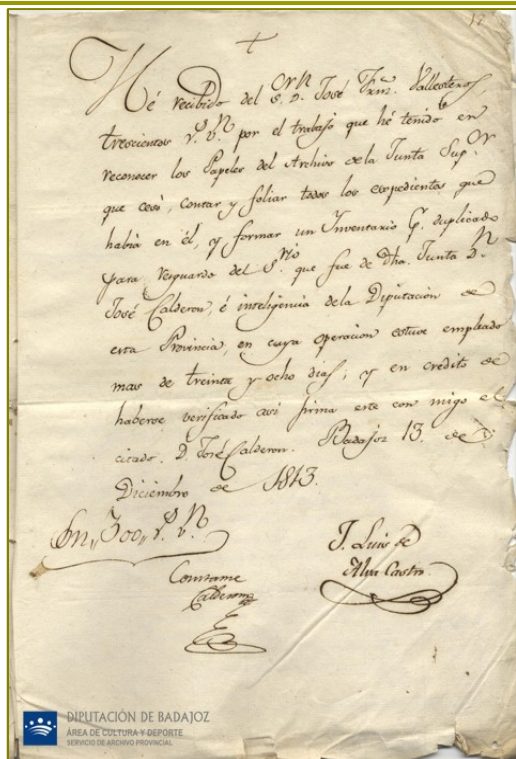 12
Hé recibido del S.ʳ D. José Fran.ᶜᵒ Vallesteros
trescientos r.ˢ v.ⁿ por el trabajo que hé tenido en
reconocer los Papeles del Archivo dela Junta Sup.ᵒʳ
que cesó, contar y foliar todos los expedientes que
habia en él, y formar un Inventario duplicado
para resguardo del S.ʳⁱᵒ que fue de dha. Junta D.ⁿ
José Calderon, é inteligencia dela Diputacion de
esta Provincia, en cuya operacion estuve empleado
mas de treinta y ocho dias; y en credito de
haberse verificado asi firma este con migo el
citado. D. José Calderon. Badajoz 13. de
Diciembre de 1813.
Son,, 300,, r.ˢ v.ⁿ
J. Luis de
Alva Castro
Constame
Calderon
DIPUTACIÓN DE BADAJOZ
ÁREA DE CULTURA Y DEPORTE
SERVICIO DE ARCHIVO PROVINCIAL